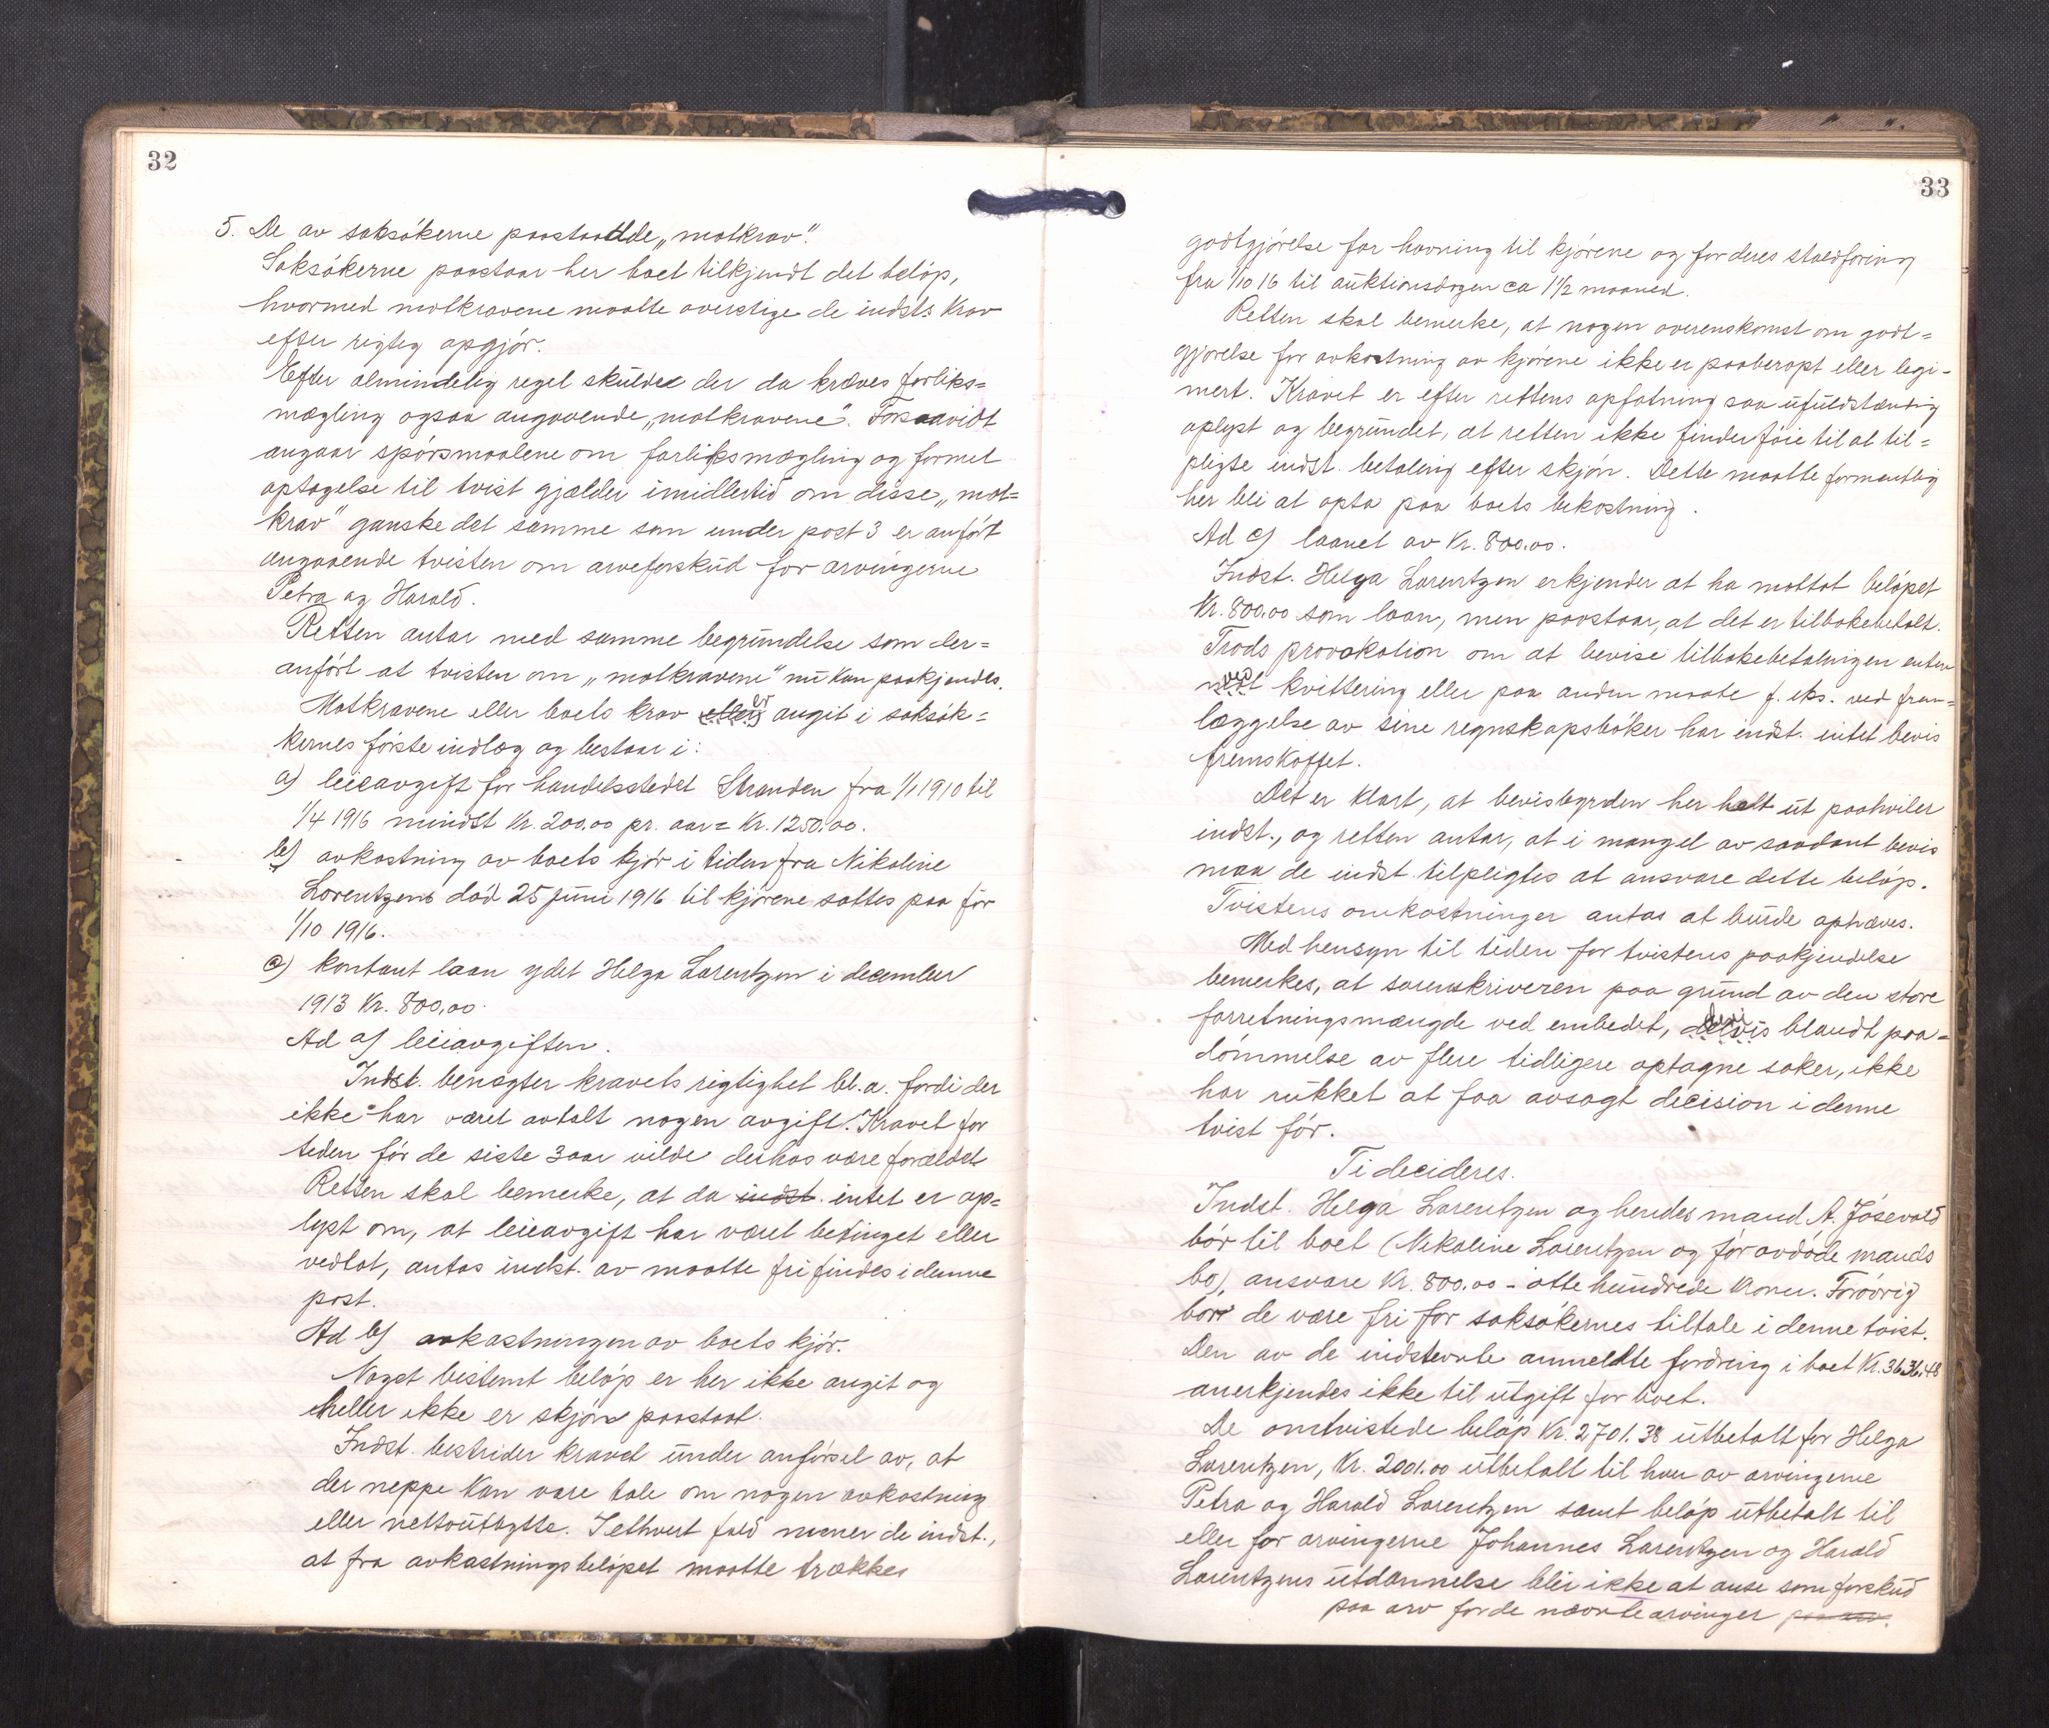 32
5. De av saksökerne paastaatde „motkrav".
Saksökerne paastaar her boet tilkjendt det belöp,
hvormed motkravene maatte overstige de indsts krav
efter rigtig opgjör.
Efter almindelig regel skulde der da kræves forliks=
mægling ogsaa angaaende „motkravene". Forsaavidt
angaar spörsmaalene om forliksmægling og formel
optagelse til tvist gjælder imidlertid om disse „mot=
krav" ganske det samme som under post 3 er anfört
angaaende tvisten om arveforskud for arvingerne
Petra og Harald.
Retten antar med samme begrundelse som der=
anfört at tvisten om „motkravene" nu kan paakjendes.
Motkravene eller boets krav er angit i saksök=
kernes förste indlæg og bestaar i:
a) leieavgift for handelsstedet Stranden fra 1/1 1910 til
1/4 1916 mindst Kr. 200,00 pr. aar = Kr. 1250,00.
b) avkastning av boets kjör i tiden fra Nikoline
Lorentzens död 25 juni 1916 til kjörene sattes paa för
1/10 1916.
c) kontant laan ydet Helga Lorentzen i december
1913 Kr. 800,00.
Ad a) leieavgiften.
Indst. benægter kravets rigtighet bl.a. fordi der
ikke har været avtalt nogen avgift. Kravet for
tiden för de siste 3 aar vilde derhos være forældet.
Retten skal bemerke, at da indst. intet er op=
lyst om, at leieavgift har været betinget eller
vedtat, antas indst. av maatte frifindes i denne
post.
Ad b) avkastningen av boets kjör.
Noget bestemt belöp er her ikke angit og
heller ikke er skjön paastaat.
Indst. bestrider kravet under anförsel av, at
der neppe kan være tale om nogen avkastning
eller nettoutbytte. I ethvert fald mener de indst.,
at fra avkastningsbelöpet maatte trækkes
33
godtgjörelse for havning til kjörene og for deres staldforing
fra 1/10 16 til auktionsdagen ca 1 1/2 maaned.
Retten skal bemerke, at nogen overenskomst om godt=
gjörelse for avkastning av kjörene ikke er paaberopt eller legi-
mert. Kravet er efter rettens opfatning saa ufuldstændig
oplyst og begrundet, at retten ikke finder föie til at til=
pligte indst. betaling efter skjön. Dette maatte formentlig
her bli at opta paa boets bekostning.
Ad c) laanet av Kr. 800,00.
Indst. Helga Lorentzen erkjender at ha mottat belöpet
Kr. 800,00 som laan, men paastaar, at det er tilbakebetalt.
Trods provokation om at bevise tilbakebetalingen enten
ved kvittering eller paa anden maate f. eks. ved frem=
læggelse av sine regnskapsböker har indst. intet bevis
fremskaffet.
Det er klart, at bevisbyrden her helt ut paahviler
indst., og retten antar, at i mangel av saadant bevis
maa de indst. tilpligtes at ansvare dette belöp.
Tvistens omkostninger antas at burde ophæves.
Med hensyn til tiden for tvistens paakjendelse
bemerkes, at sorenskriveren paa grund av den store
forretningsmængde ved embedet, delvis blandt paa=
dömmelse av flere tidligere optagne saker, ikke
har rukket at faa avsagt decision i denne
tvist för.
Ti decideres.
Indst. Helga Lorentzen og hendes mand A. Jösevold
bör til boet (Nikoline Lorentzen og för avdöde mands
bo), ansvare Kr. 800,00 - otte hundrede kroner. Forövrig
bör de være fri for saksökernes tiltale i denne tvist.
Den av de indstevnte anmeldte fordring i boet Kr. 3636,48
anerkjendes ikke til utgift for boet.
De omtvistede belöp Kr. 2701.38 utbetalt for Helga
Lorentzen, Kr. 2001.00 utbetalt til hver av arvingerne
Petra og Harald Lorentzen samt belöp utbetalt til
eller for arvingerne Johannes Lorentzen og Harald
Lorentzens utdannelse blir ikke at anse som forskud
paa arv for de nævnte arvinger paa arv.